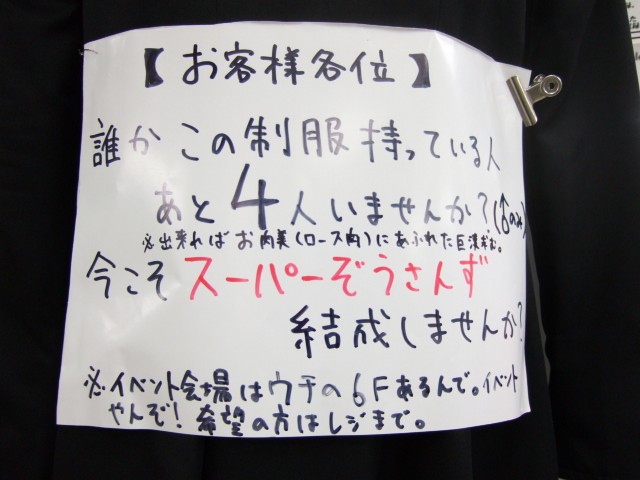 【お客様各位】
誰かこの制服持っている人
あと4人いませんか？(♂のみ)
※出来ればお肉美(ロース肉)にあふれた巨漢求む。
今こそスーパーぞうさんず
結成しませんか？
※イベント会場はウチの6Fあるんで。イベント
やんぞ！希望の方はレジまで。